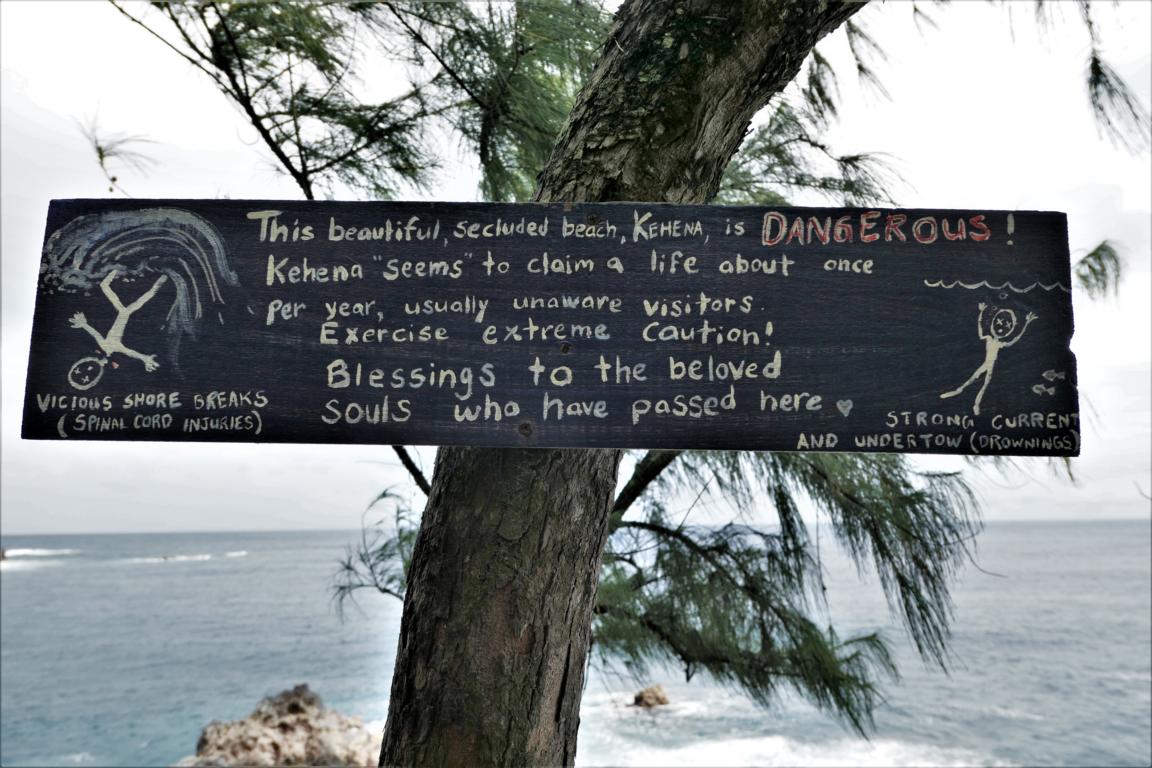 This beautiful, secluded beach, KEHENA, is DANGEROUS!
Kehena "seems" to claim a life about once
per year, usually unaware visitors.
Exercise extreme caution!
Blessings to the beloved
souls who have passed here
VICIOUS SHORE BREAKS
(SPINAL CORD INJURIES)
STRONG CURRENT
AND UNDERTOW (DROWNINGS)